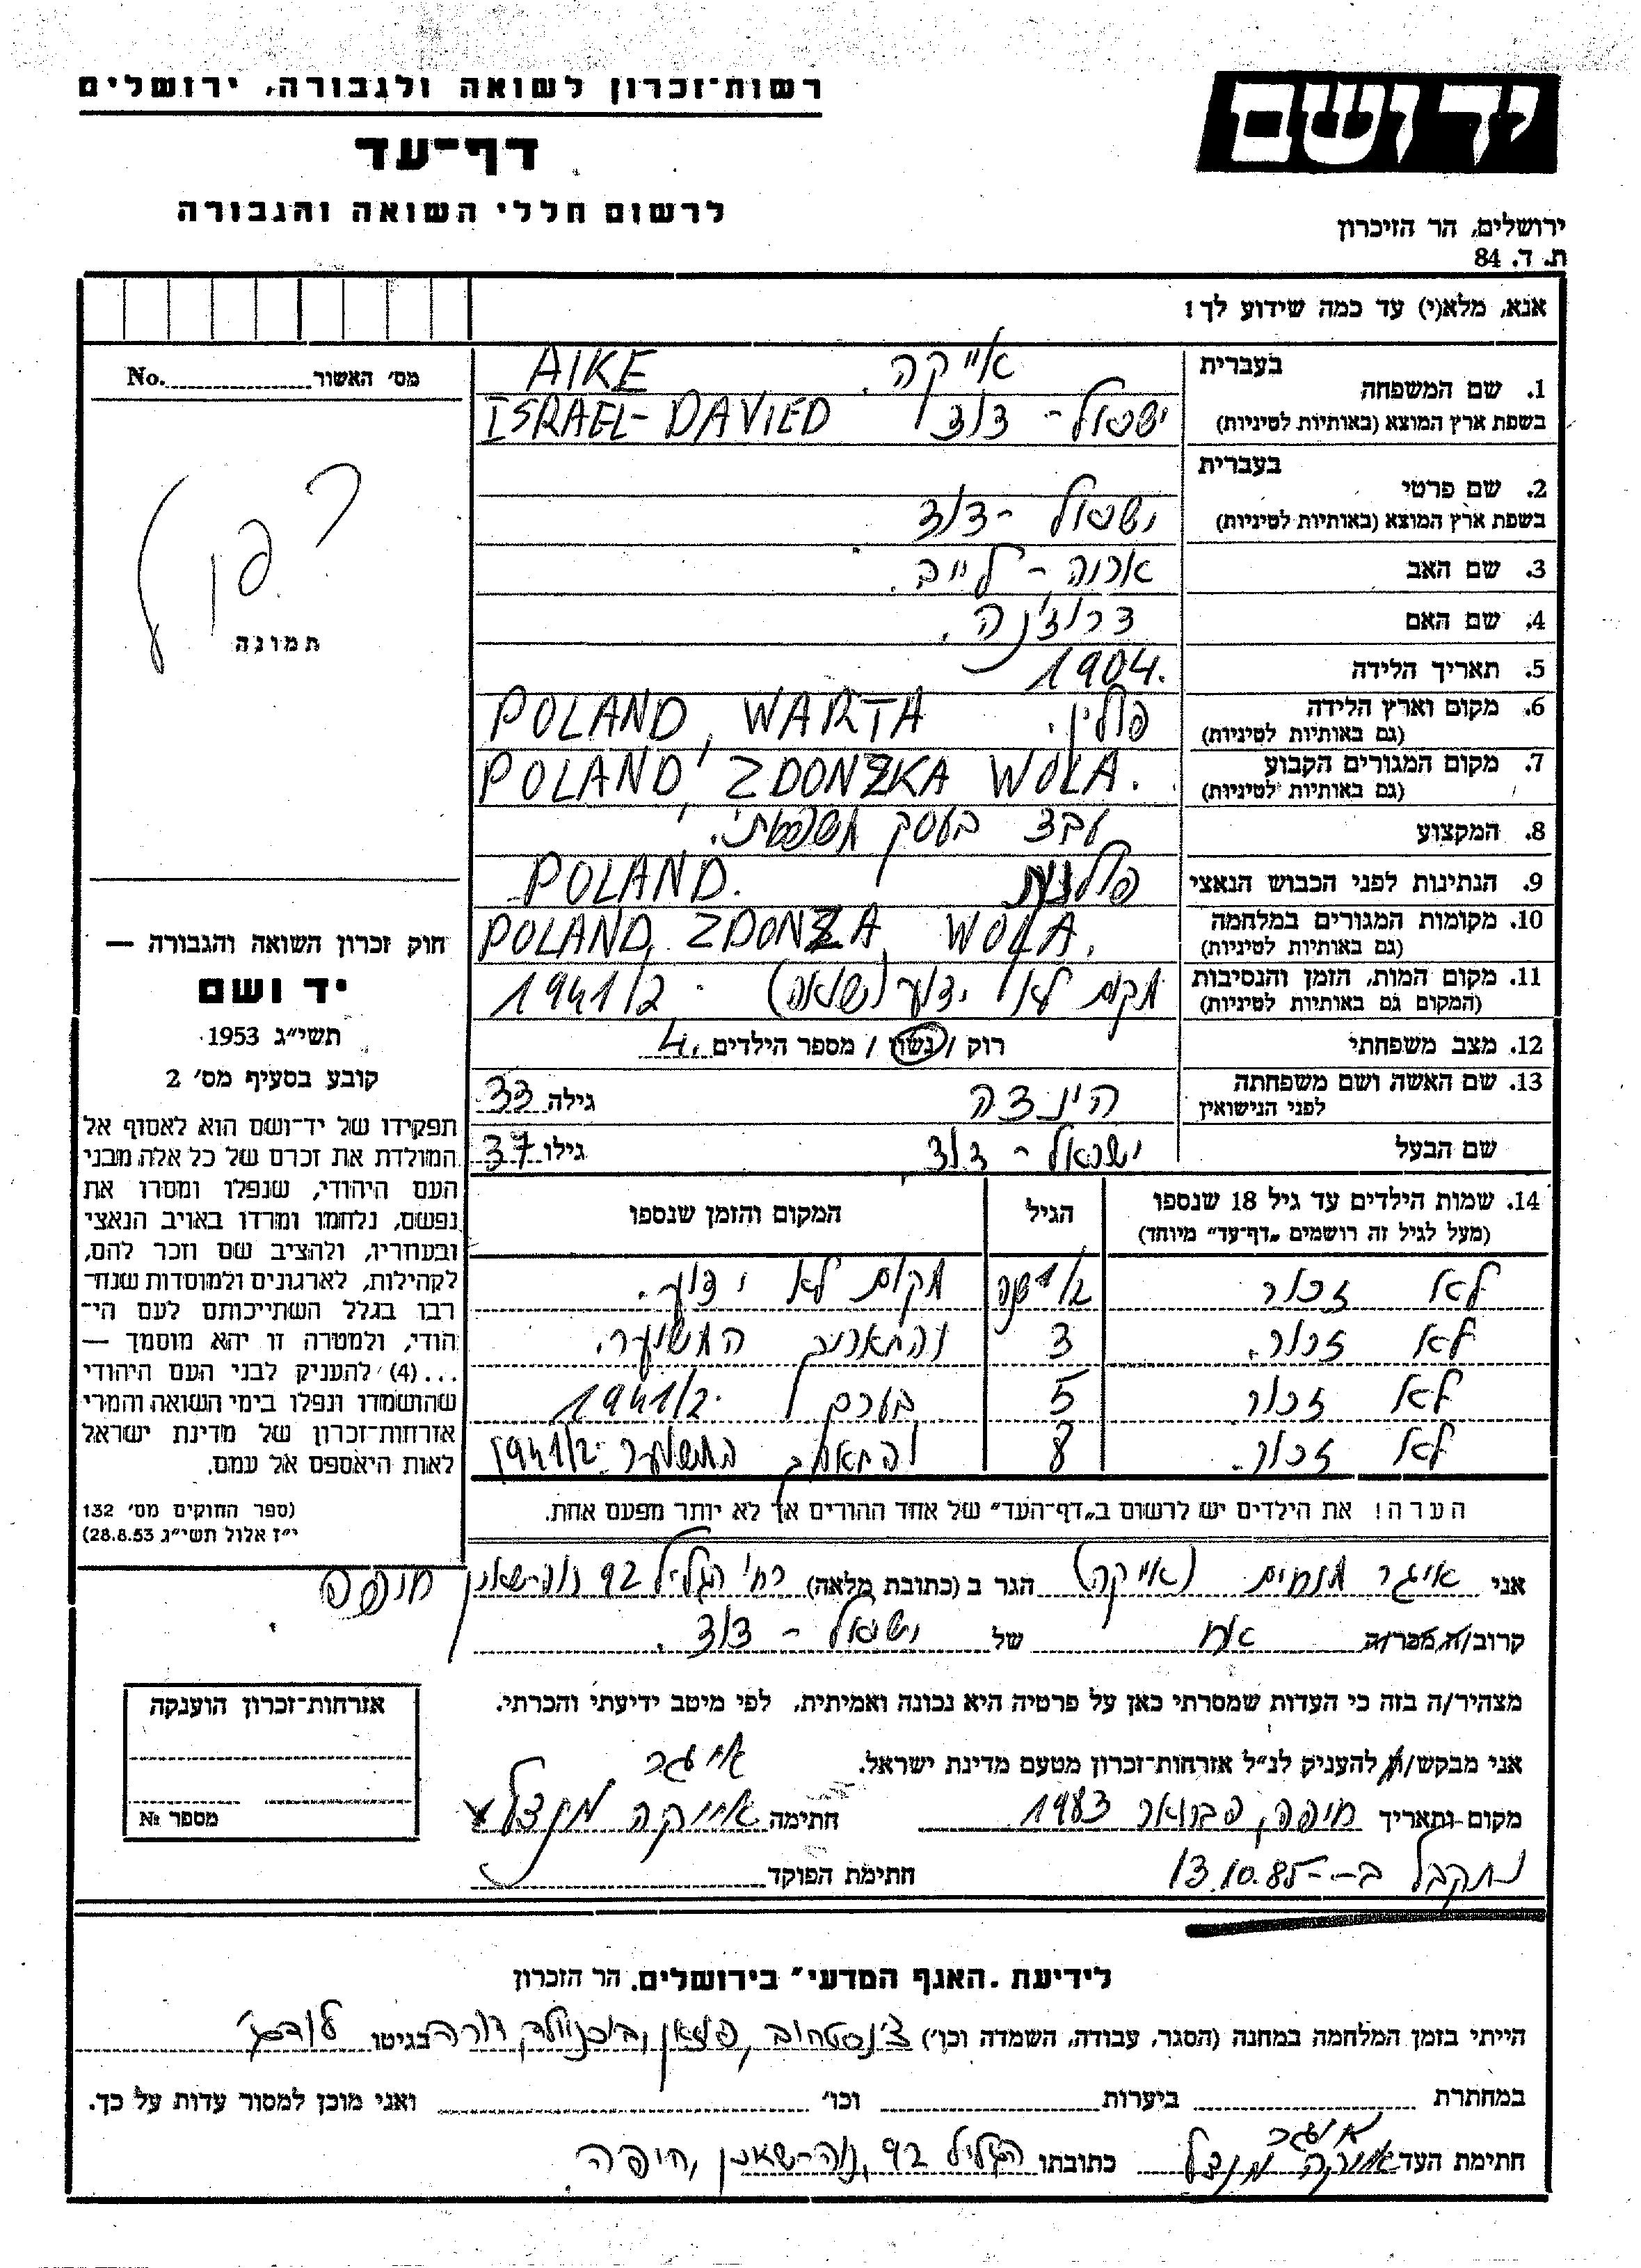 רשות־זכרון לשואה ולגבורה, ירושלים
יד ושם
דף־עד
לרשום חללי השואה והגבורה
ירושלים, הר הזיכרון
ת. ד. 84
אנא, מלא(י) עד כמה שידוע לך!
מס׳ האשור No.
תמונה
1. שם המשפחה בעברית אייקה. AIKE
בשפת ארץ המוצא (באותיות לטיניות) ישראל - דוד ISRAEL-DAVIED
2. שם פרטי בעברית
בשפת ארץ המוצא (באותיות לטיניות) ישראל - דוד
3. שם האב ארוה - לייב.
4. שם האם
5. תאריך הלידה 1904.
6. מקום וארץ הלידה פולין. POLAND, WARTA
(גם באותיות לטיניות)
7. מקום המגורים הקבוע POLAND, ZDONZKA WOLA.
(גם באותיות לטיניות)
8. המקצוע עבד בעסק משפחתי.
9. הנתינות לפני הכבוש הנאצי פולנית POLAND.
10. מקומות המגורים במלחמה POLAND, ZDONZA WOLA.
(גם באותיות לטיניות)
11. מקום המות, הזמן והנסיבות מקום לא ידוע (שואה) 1941/2.
(המקום גם באותיות לטיניות)
12. מצב משפחתי רוק / נשוי / מספר הילדים 4.
13. שם האשה ושם משפחתה הינדה גילה 33
לפני הנישואין
שם הבעל ישראל - דוד גילו 37
14. שמות הילדים עד גיל 18 שנספו הגיל המקום והזמן שנספו
(מעל לגיל זה רושמים „דף־עד״ מיוחד)
לא זכור מקום לא ידוע.
לא זכור. 3 והתאריך המשוער.
לא זכור 5 בערך 1941/2.
לא זכור. 8 והתאריך המשוער 1941/2.
הערה! את הילדים יש לרשום ב„דף־העד״ של אחד ההורים אך לא יותר מפעם אחת.
חוק זכרון השואה והגבורה —
יד ושם
תשי״ג 1953
קובע בסעיף מס׳ 2
תפקידו של יד־ושם הוא לאסוף אל
המולדת את זכרם של כל אלה מבני
העם היהודי, שנפלו ומסרו את
נפשם, נלחמו ומרדו באויב הנאצי
ובעוזריו, ולהציב שם וזכר להם,
לקהילות, לארגונים ולמוסדות שנח־
רבו בגלל השתייכותם לעם הי־
הודי, ולמטרה זו יהא מוסמך —
...(4) להעניק לבני העם היהודי
שהושמדו ונפלו בימי השואה והמרי
אזרחות־זכרון של מדינת ישראל
לאות היאספם אל עמם.
(ספר החוקים מס׳ 132
י״ז אלול תשי״ג 28.8.53)
אני איגר מנחים (אייקה) הגר ב (כתובת מלאה) רח׳ הגליל 92 נוה-שאנן חיפה
קרוב/ה מכר/ה אח של ישראל - דוד.
מצהיר/ה בזה כי העדות שמסרתי כאן על פרטיה היא נכונה ואמיתית, לפי מיטב ידיעתי והכרתי.
אני מבקש/ת להעניק לנ״ל אזרחות־זכרון מטעם מדינת ישראל.
איגר
מקום ותאריך חיפה, פברואר 1983 חתימה אייקה מנדל
נתקבל ב-- 13.10.85 חתימת הפוקד
אזרחות־זכרון הוענקה
מספר №
לידיעת „האגף המדעי״ בירושלים. הר הזכרון
הייתי בזמן המלחמה במחנה (הסגר, עבודה, השמדה וכו׳) צ׳נסטחוב, פוזנאן, בוכנוולד דורה בגיטו לודז׳
במחתרת ביערות וכו׳ ואני מוכן למסור עדות על כך.
איגר
חתימת העד אייקה מנדל כתובתו הגליל 92, נוה-שאנן, חיפה